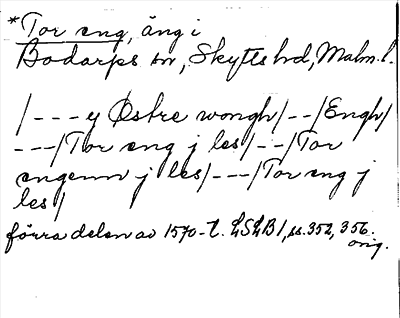 *Tor eng, äng i
Bodarps sn, Skytts hd, Malm. l.
/---y Østre wongh/--/Engh/
---/Tor eng j les/--/Tor
engenn j les/---/Tor eng j
les/
förra delen av 1570-t. LSLB1, ss. 352, 356.
orig.